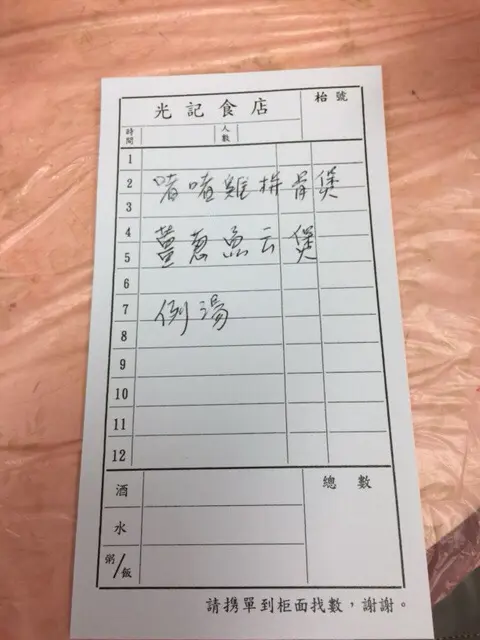 光記食店
枱號
時間
人數
1
2
3
4
5
6
7
8
9
10
11
12
啫啫雞拼骨煲
薑葱魚云煲
例湯
酒
水
粥/飯
總數
請携單到柜面找數，謝謝。